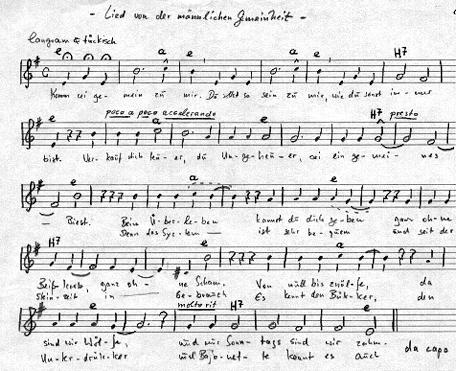 - Lied von der männlichen Gemeinheit -
langsam & tückisch
e a e a e
Komm sei ge- mein zu mir. Du sollst so sein zu mir, wie du sonst im- mer
H7
poco a poco accelerando
e a e H7 presto
bist. Ver- kauf dich teu- er, du Un- ge- heu- er, sei ein ge- mei- nes
e a e
Biest. Beim Ü- ber- le- ben kannst du dich ge- ben ganz oh- ne
Denn das Sys- tem ist sehr be- quem und seit der
H7 e a
ganz oh- ne Scham. Von null bis zwölfe, da
Stein- zeit in Ge- brauch Es kennt den den
e molto rit a H7 e
sind wir Wöl- fe, und nur Sonn- tags sind wir zahm.
Un- ter- drücker und Bajo- net- te kennt es auch
da capo